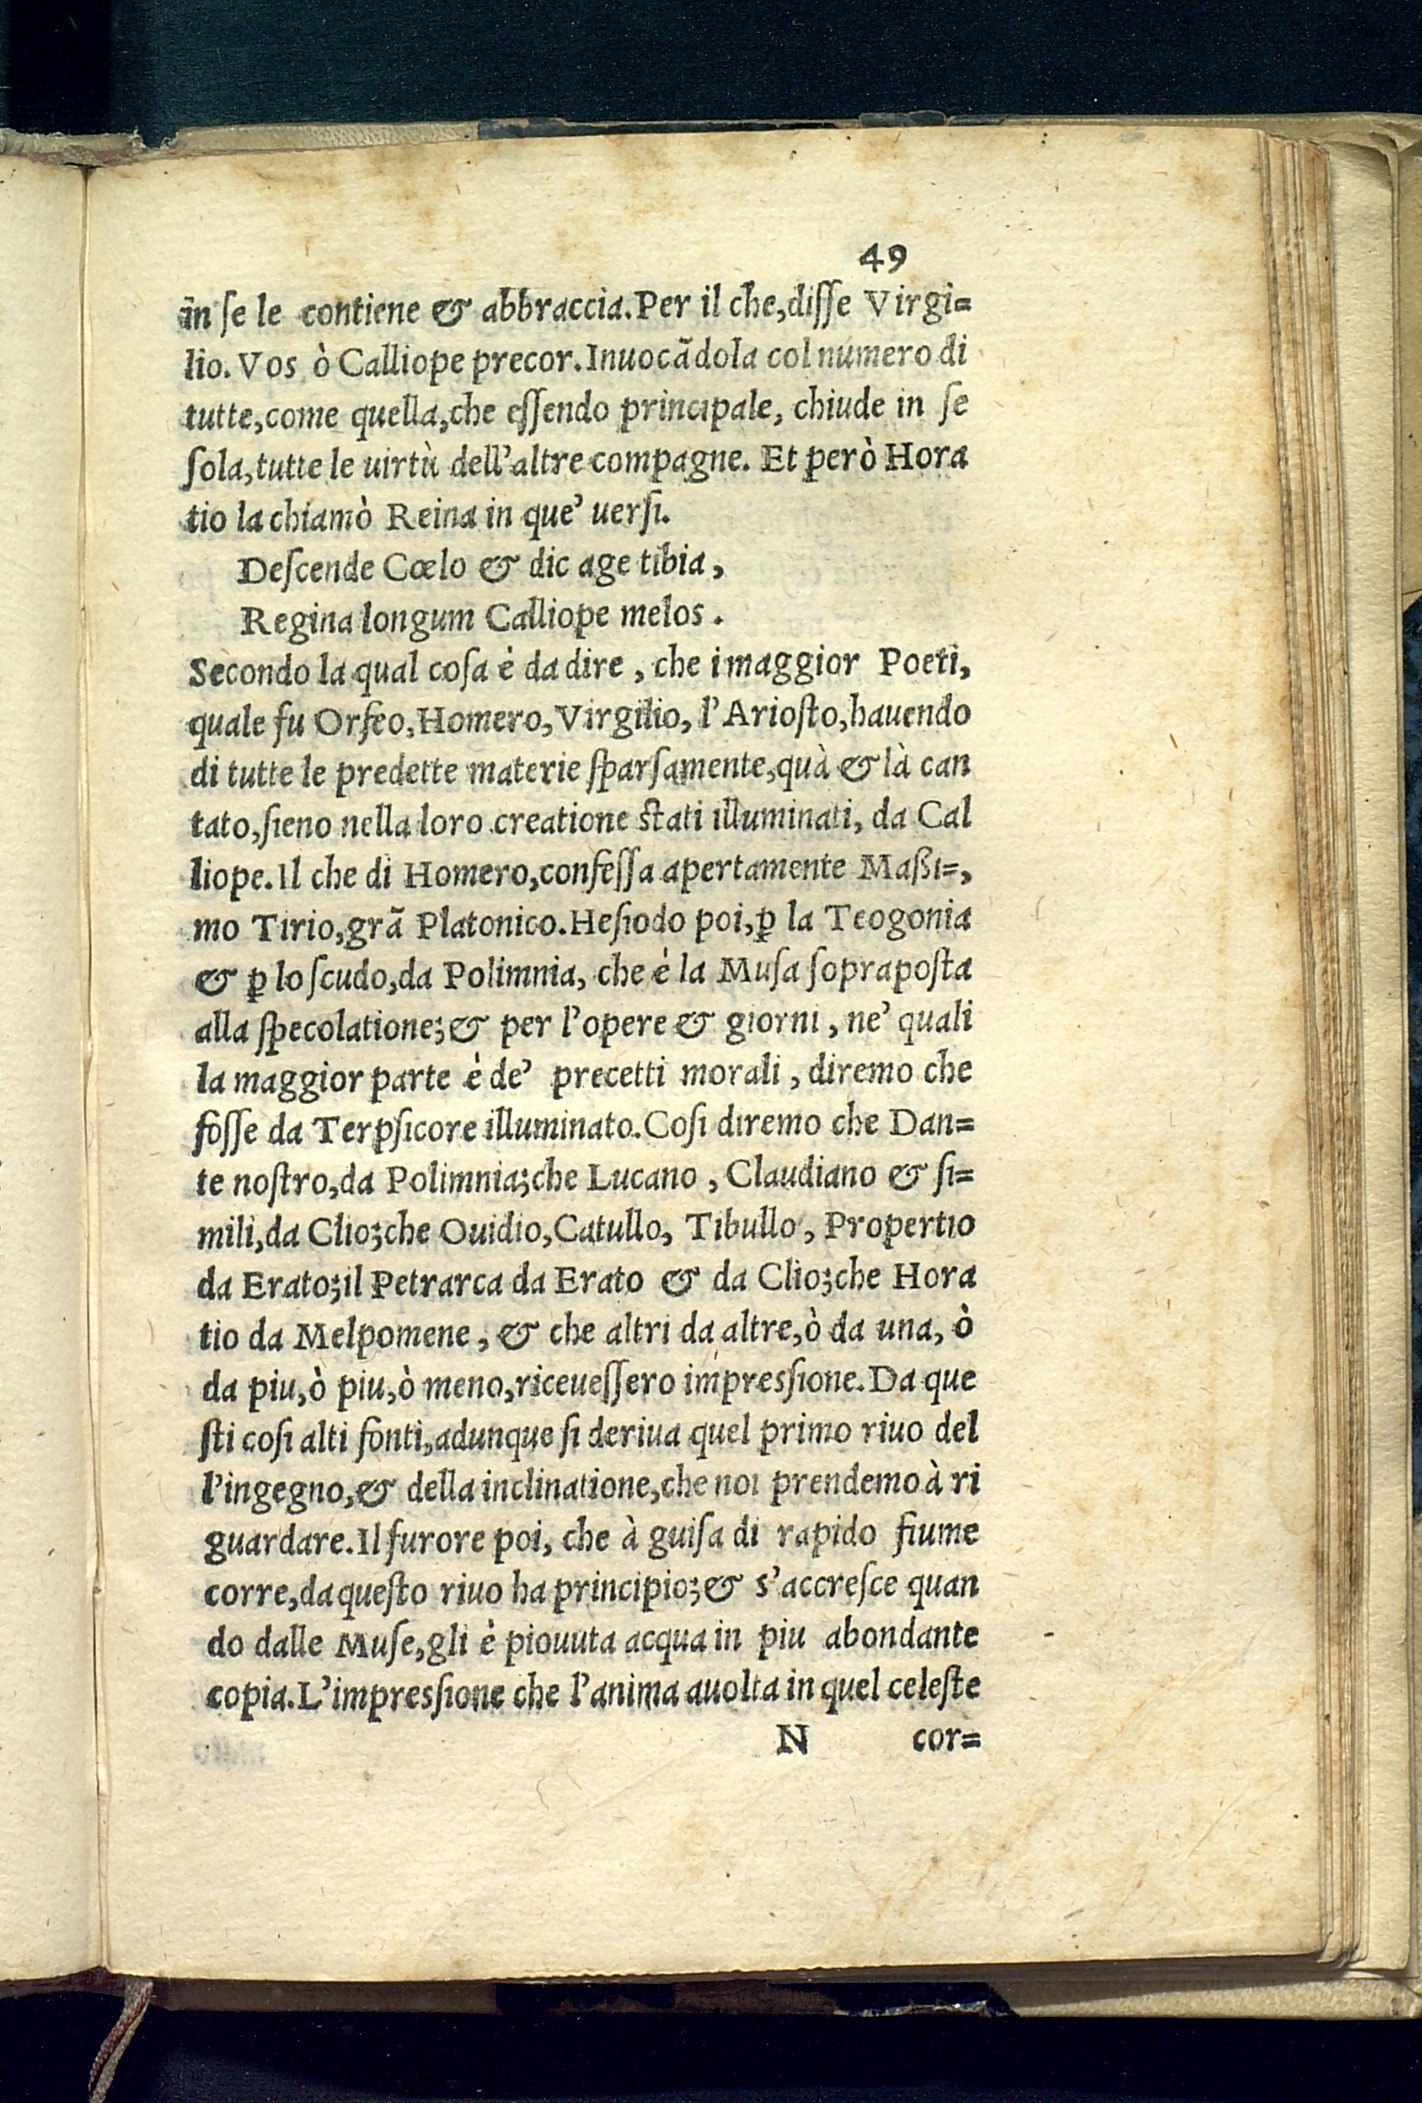 49
in ſe le contiene & abbraccia. Per il che, diſſe Virgi=
lio. Vos ò Calliope precor. Inuocãdola col numero di
tutte, come quella, che eſſendo principale, chiude in ſe
ſola, tutte le uirtù dell'altre compagne. Et però Hora
tio la chiamò Reina in que' uerſi.
Deſcende Cœlo & dic age tibia,
Regina longum Calliope melos.
Secondo la qual coſa è da dire, che i maggior Poeti,
quale fu Orfeo, Homero, Virgilio, l'Arioſto, hauendo
di tutte le predette materie ſparſamente, quà & là can
tato, ſieno nella loro creatione ſtati illuminati, da Cal
liope. Il che di Homero, confeſſa apertamente Maßi=,
mo Tirio, grã Platonico. Heſiodo poi, ꝑ la Teogonia
& ꝑ lo ſcudo, da Polimnia, che è la Muſa ſoprapoſta
alla ſpecolatione; & per l'opere & giorni, ne' quali
la maggior parte è de' precetti morali, diremo che
foſſe da Terpſicore illuminato. Coſi diremo che Dan=
te noſtro, da Polimnia; che Lucano, Claudiano & ſi=
mili, da Clio; che Ouidio, Catullo, Tibullo, Propertio
da Erato; il Petrarca da Erato & da Clio; che Hora
tio da Melpomene, & che altri da altre, ò da una, ò
da piu, ò piu, ò meno, riceueſſero impreſſione. Da que
ſti coſi alti fonti, adunque ſi deriua quel primo riuo del
l'ingegno, & della inclinatione, che noi prendemo à ri
guardare. Il furore poi, che à guiſa di rapido fiume
corre, da queſto riuo ha principio; & s'accreſce quan
do dalle Muſe, gli è piouuta acqua in piu abondante
copia. L'impreſſione che l'anima auolta in quel celeſte
N cor=